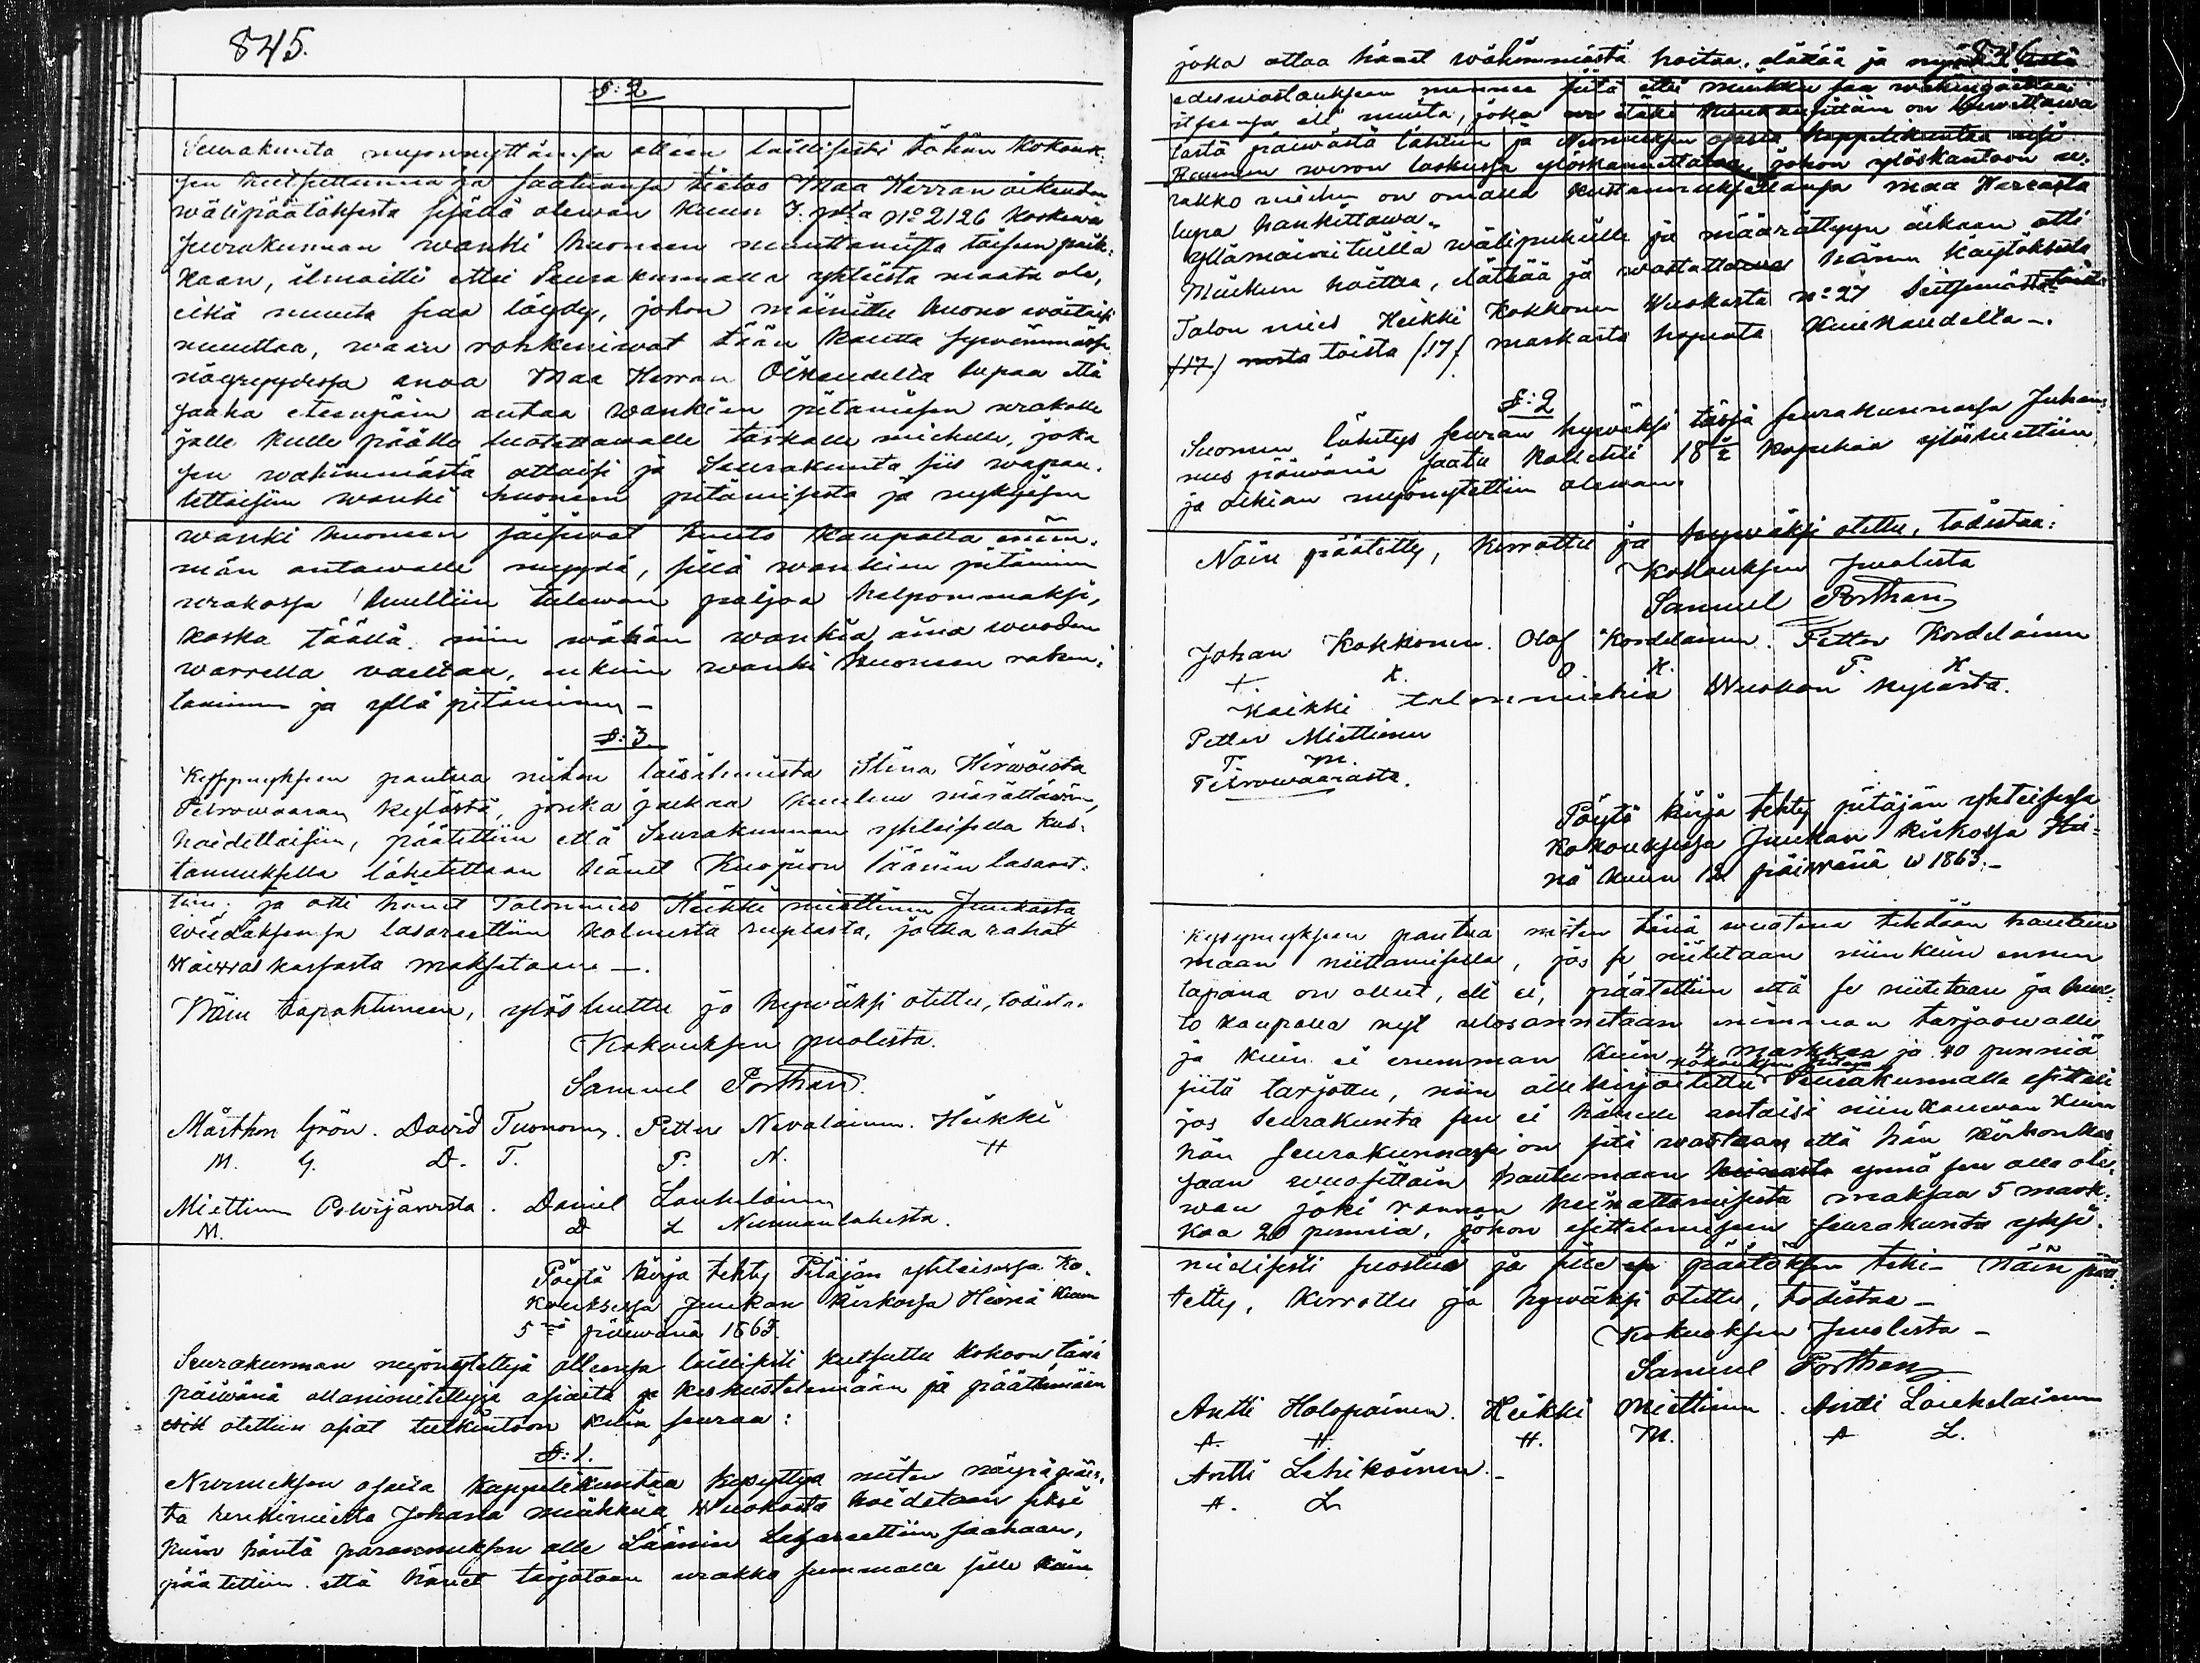 845.
§:2
Seurakunta myönnyttänsä olleen laillisesti tähän kokouk-
sen kutsuttunna ja saatuansa tietoa Maa Herran oikeuden
wälipäätöksestä sisällä olewan kuun 3. p:ltä N:o 2126 koskewa
seurakunnan wanki huoneen muuttamista toiseen paik-
kaan, ilmoitti ettei Seurakunnalla yhteistä maata ole,
eikä muuta saa löydy, johon mainittu huone woitaisi
muuttaa, waan rohkeniwat tään kautta sywimmässä
nöyryydessä anoa Maa Herran Oikeudelta lupaa että
saaha eteenpäin antaa wankien pitämisen urakalle
jolle kulle päälle luotettawalle taskalle miehelle, joka
sen wähimmästä ottaisi ja Seurakunta siis wapau-
tettaisiin wanki huoneen pitämisestä ja nykyisen
wanki huoneen saisiwat huuto kaupalla enim-
män antawalle myydä, sillä wankien pitäminen
urakassa luultiin tulewan paljoa helpommaksi,
koska täällä niin wähän wankia aina wuoden
warrella waeltaa, enkuin wanki huoneen raken-
taminen ja yllä pitäminen –
§:3
Kysymykseen pantua miten loisihmistä Stiina Hirwoista
Petrowaaran kylästä, jonka jalkaa kuuluu mädättäwän,
hoidettaisiin, päätettiin että Seurakunnan yhteisellä kus-
tannuksella lähetettään hänet Kuopion läänin lasaret-
tiin; ja otti hänet Talonmies Heikki Miettinen Juukasta
wiedäksensä lasarettiin kolmesta ruplasta, jotka rahat
Waiwas kassasta maksetaan –.
Näin tapahtuneen, ylös luettu ja hywäksi otettu, todista.
Kokouksen puolesta.
Samuel Porthan.
Mårthen Grön. David Tuononen. Petter Nevalainen. Heikki
M. G. D. T. P. N. H
Miettinen Polwijärwestä. Daniel Laukalainen
M. D L Nunnanlahesta.
Pöytä kirja tehty Pitäjän yhteisessä Ko-
kouksessa Juukan kirkossa Heinä kuun
5:nä päiwänä 1863.
Seurakunnan myönnytettyä ollensa laillisesti kutsuttu kokoon tänä
päiwänä allanimitettyjä asioita ja keskustelemaan ja päättämään
otettiin asiat tutkintoon kuin seuraa:
§:1.
Nurmeksen osasta Kappelikuntaa kysyttyä miten
ta renkimiestä Johasta Wuokosta hoidetaan siksi
kuin häntä parannuksen alle Läänin Lasarettiin saahaan,
päätettiin että hänet tarjotaan urakka summalle sille kuin
846
joka ottaa hänet wähimmästä hoitaa, elättää ja
edeswastauksen siitä ettei saa wahingoittaa
itseensä eli muita, joka
tästä päiwästä lähtien ja Nurmeksen osasta kappelikuntaa
ruunun weron laskussa ylöskannettawa, johon ylöskantoon u-
rakko miehen on omalla kustannuksellansa maa Herrasta
lupa hankittawa.
Yllämainituilla wälipuheille ja määrättyyn aikaan otti
hoittaa, elättää ja wastattawa hänen käytöksestä
Talon mies Heikki Kokkonen Wuokosta N:o 27 Seitsemästätoista
(17) toista (17) markasta hopeata kuukaudelta –.
§:2
Suomen lähetys seuran hywäksi tässä seurakunnassa Juhan-
nus päiwänä saatu kollehti 18 ½ kopekaa ylösluettiin
ja oikian myönnytettiin olewan.
Näin päätetty, kerrottu ja hywäksi otettu, todistaa:
Kokouksen puolesta
Samuel Porthan
Johan Kokkonen. Olof Kordelainen. Petter Kordelainen
K. O K. P. K
Kaikki talonmiehiä Wuokon kylästä.
Petter Miettinen
P. M.
Petrowaarasta.
Pöytä kirja tehty pitäjän yhteisessä
Kokouksessa Juukan kirkossa Hei-
nä kuun 12 päiwänä w 1863.–
Kysymykseen pantua miten tänä wuotena tehdään hautuu
maan niittämisellä, jos se niitetään niinkuin ennen
tapana on ollut, eli ei, päätettiin että se niitetään ja huu-
to kaupalla nyt ulosannetaan enimmän tarjoowalle
ja kuin ei enemmän kuin 4 markkaa ja 40 penniä
kokouksen pitäjä
siitä tarjottu, niin allekirjoitettu Seurakunnalle esitteli
jos Seurakunta sen ei hänelle antaisi niinkauwan kuin
hän seurakunnassa on sitä wastaan, että hän kirkonkas-
saan wuosittain hautuumaan ynnä sen alla ole-
wan joki rannan heinottamisesta maksaa 5 mark-
kaa 20 penniä, johon esittelemiseen seurakunta yksi-
mielisesti suostui ja sille päätöksen teki – Näin pää-
tetty, kerrottu ja hywäksi otettu, todistaa –
Kokouksen puolesta –
Samuel Porthan
Antti Holopainen. Heikki Miettinen. Antti Laukalainen
A. H. H. M. A L.
Antti Lehikoinen.
A. L